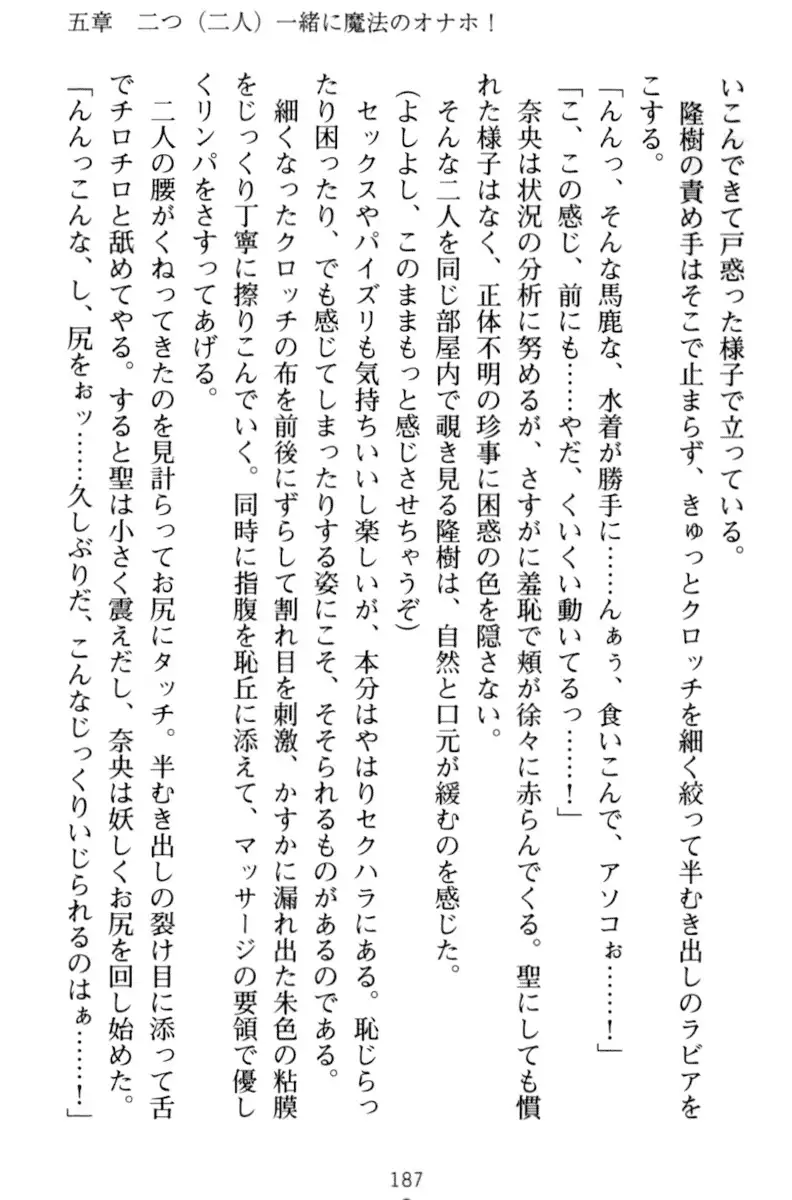 五章　二つ（二人）一緒に魔法のオナホ！
いこんできて戸惑った様子で立っている。
　隆樹の責め手はそこで止まらず、きゅっとクロッチを細く絞って半むき出しのラビアを
こする。
「んんっ、そんな馬鹿な、水着が勝手に……んぁぅ、食いこんで、アソコぉ……！」
「こ、この感じ、前にも……やだ、くいくい動いてるっ……！」
　奈央は状況の分析に努めるが、さすがに羞恥で頬が徐々に赤らんでくる。聖にしても慣
れた様子はなく、正体不明の珍事に困惑の色を隠さない。
　そんな二人を同じ部屋内で覗き見る隆樹は、自然と口元が緩むのを感じた。
（よしよし、このままもっと感じさせちゃうぞ）
　セックスやパイズリも気持ちいいし楽しいが、本分はやはりセクハラにある。恥じらっ
たり困ったり、でも感じてしまったりする姿にこそ、そそられるものがあるのである。
　細くなったクロッチの布を前後にずらして割れ目を刺激、かすかに漏れ出た朱色の粘膜
をじっくり丁寧に擦りこんでいく。同時に指腹を恥丘に添えて、マッサージの要領で優し
くリンパをさすってあげる。
　二人の腰がくねってきたのを見計らってお尻にタッチ。半むき出しの裂け目に添って舌
でチロチロと舐めてやる。すると聖は小さく震えだし、奈央は妖しくお尻を回し始めた。
「んんっこんな、し、尻をぉッ……久しぶりだ、こんなじっくりいじられるのはぁ……！」
187